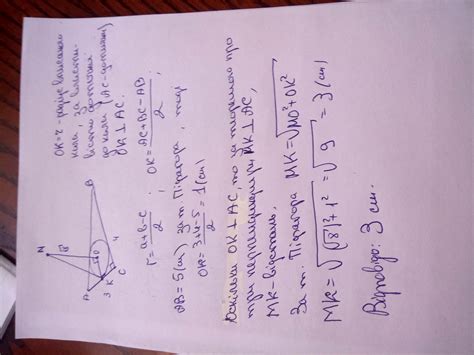 OK=r - радіус вписаного
кола, за власти-
вістю дотичної
до кола (AC - дотична)
OK⊥AC.
N
√8
O
A
3
K
C
4
B
r = a+b-c / 2 ; OK = AC+BC-AB / 2
AB = 5 (см) за т. Піфагора, тоді
OK = 3+4-5 / 2 = 1 (см)
Оскільки OK⊥AC, то за теоремою про
три перпендикуляри MK⊥AC,
MK - відстань.
За т. Піфагора MK = √MO²+OK²
MK = √(√8)²+1² = √9 = 3 (см)
Відповідь: 3 см.